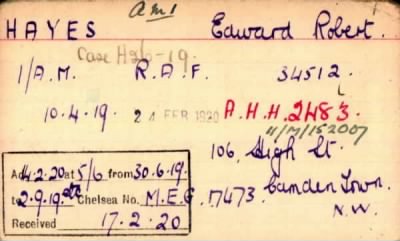 A M 1
HAYES Edward Robert.
Case H26-19.
1/A.M. R.A.F. 34512.
10.4.19. 24 FEB 1920 A.H.H. 2483.
11/M/152007
106, High St.
Camden Town.
N.W.
14.2.20 at 5/6 from 30.6.19.
to 2.9.19. Chelsea No. M.E.G. 17473.
Received 17.2.20